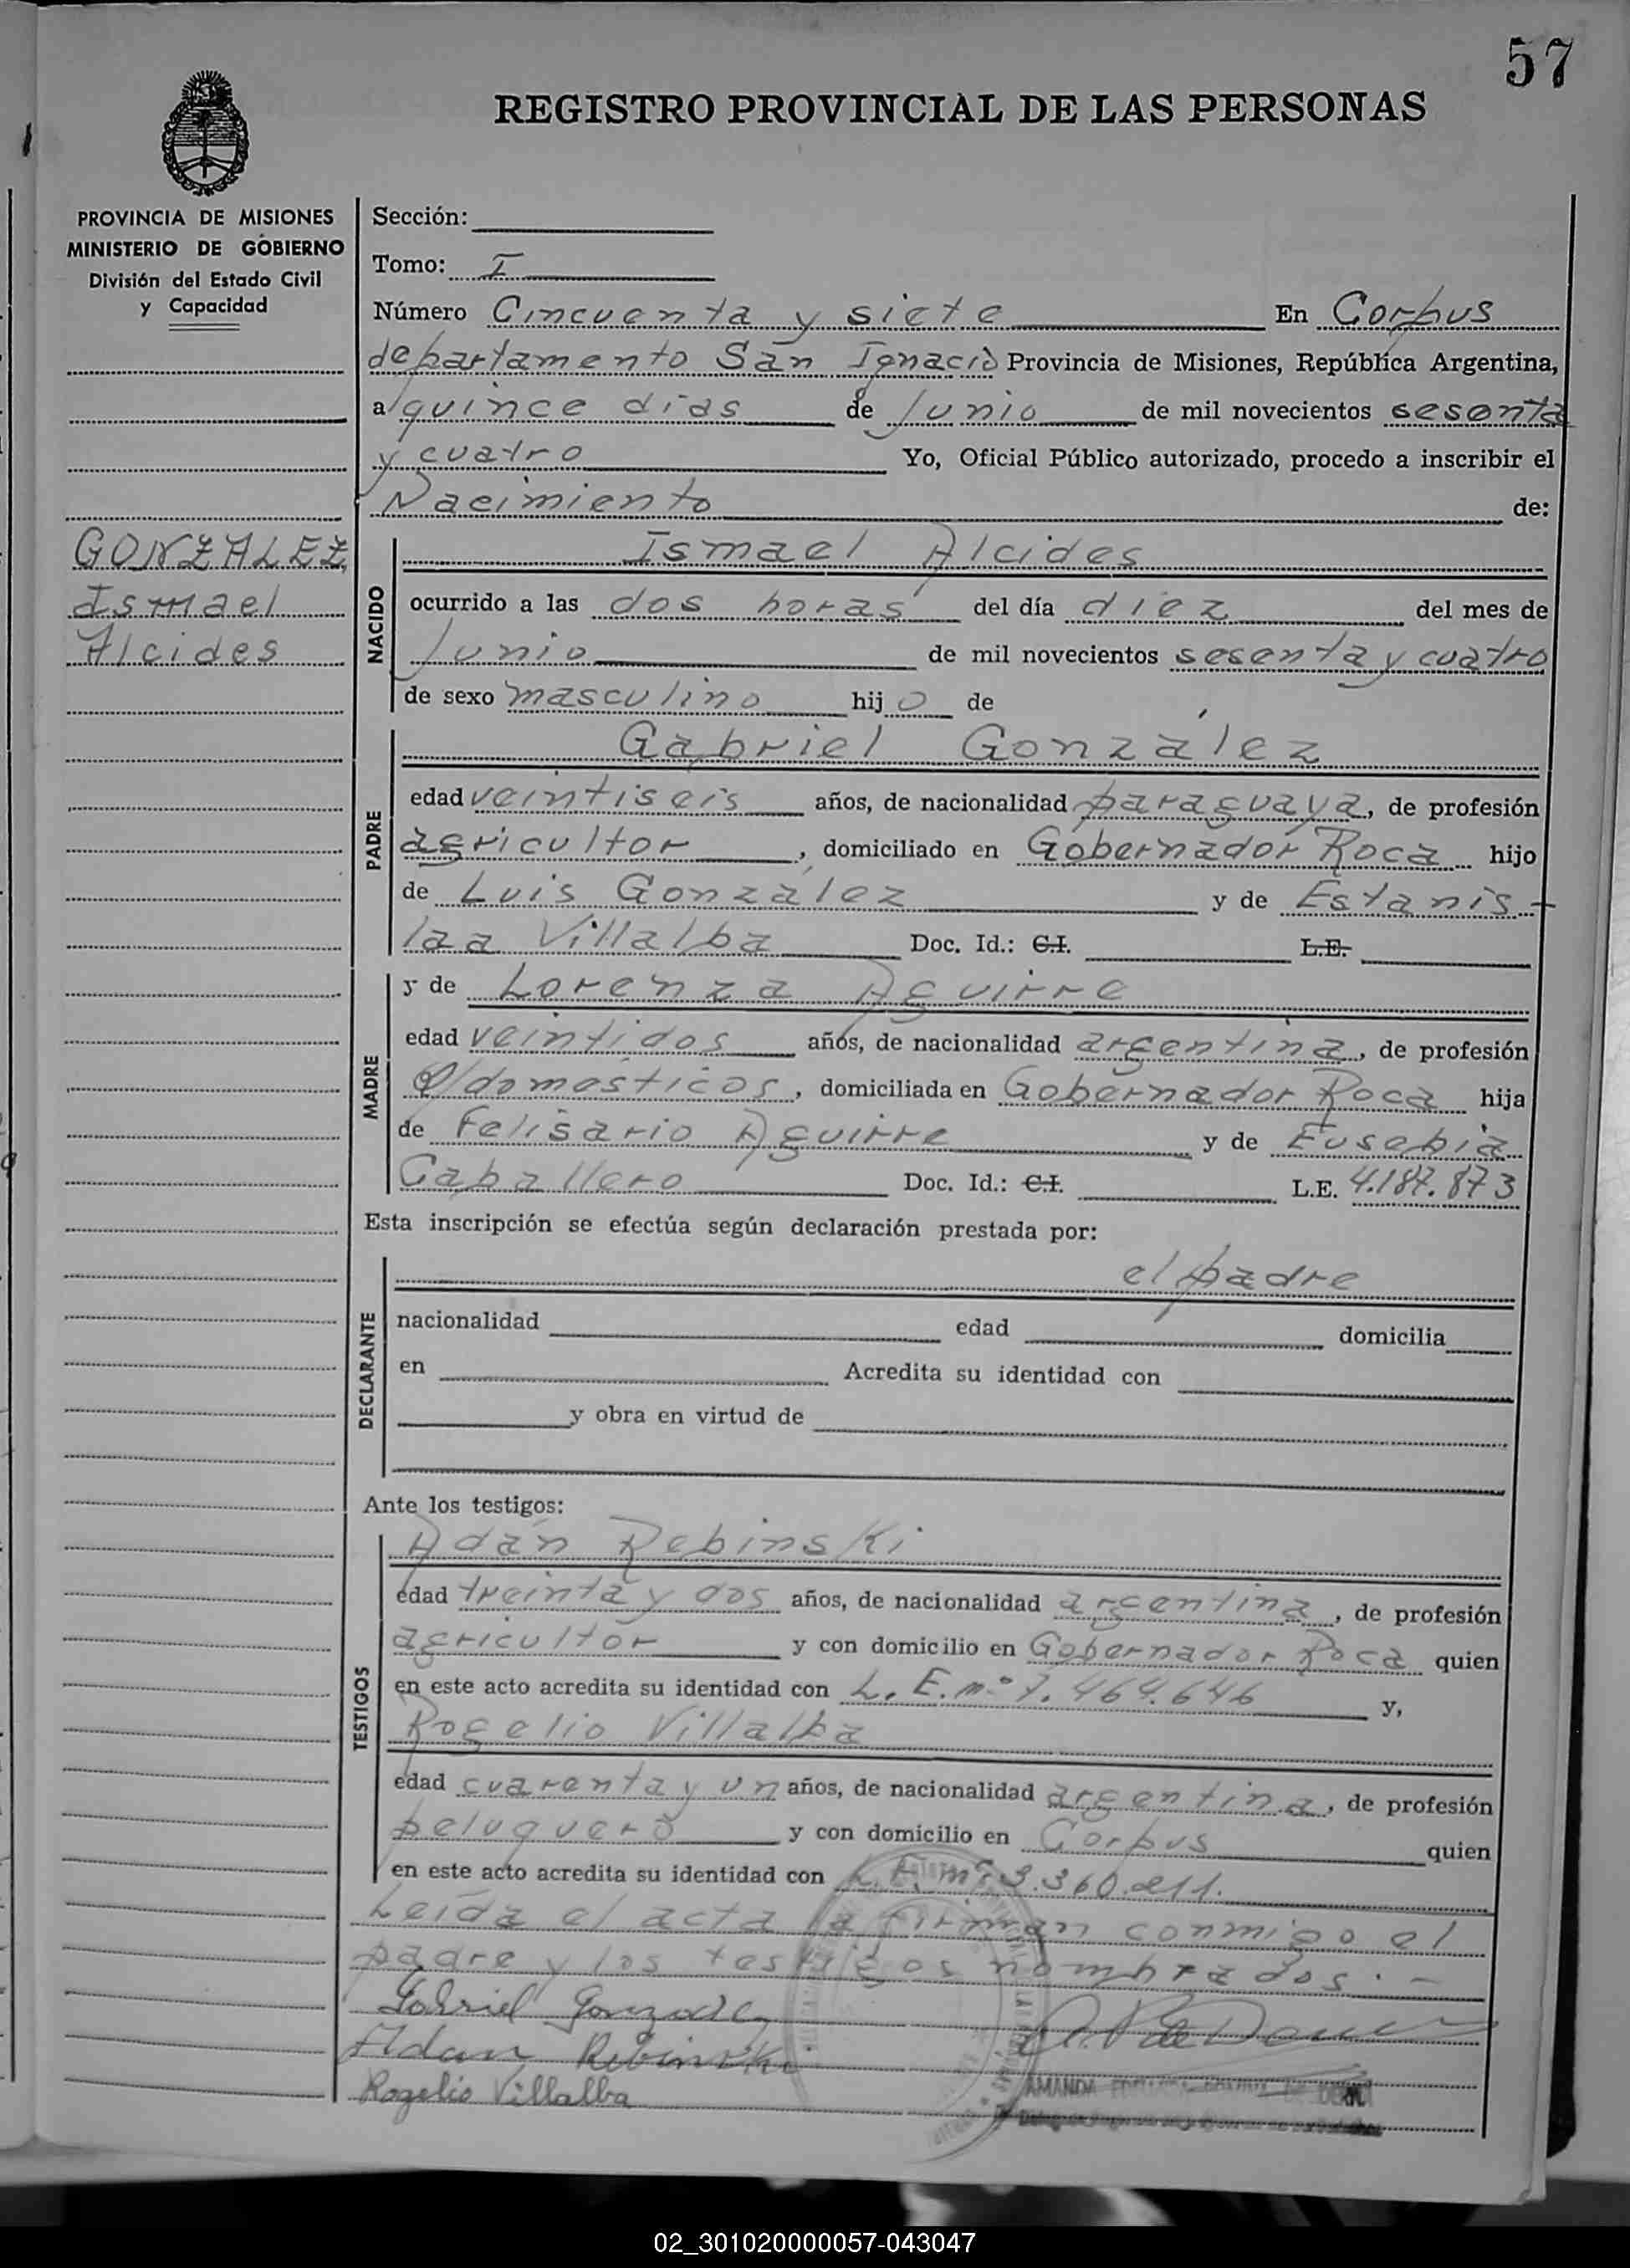 57
REGISTRO PROVINCIAL DE LAS PERSONAS
PROVINCIA DE MISIONES
MINISTERIO DE GOBIERNO
División del Estado Civil
y Capacidad
GONZALEZ,
Ismael
Alcides
Sección:
Tomo: I
Número Cincuenta y siete En Corpus
departamento San Ignacio Provincia de Misiones, República Argentina,
a quince dias de Junio de mil novecientos sesenta
y cuatro Yo, Oficial Público autorizado, procedo a inscribir el
Nacimiento de:
NACIDO
Ismael Alcides
ocurrido a las dos horas del día diez del mes de
Junio de mil novecientos sesenta y cuatro
de sexo masculino hijo de
PADRE
Gabriel González
edad veintiseis años, de nacionalidad paraguaya, de profesión
agricultor, domiciliado en Gobernador Roca hijo
de Luis González y de Estanis-
laa Villalba Doc. Id.: C.I. L.E.
MADRE
y de Lorenza Aguirre
edad veintidos años, de nacionalidad argentina, de profesión
q/domésticos, domiciliada en Gobernador Roca hija
de Felisario Aguirre y de Eusebia
Caballero Doc. Id.: C.I. L.E. 4.187.873
Esta inscripción se efectúa según declaración prestada por:
DECLARANTE
el padre
nacionalidad edad domicilia
en Acredita su identidad con
y obra en virtud de
Ante los testigos:
TESTIGOS
Adán Rebinski
edad treinta y dos años, de nacionalidad argentina, de profesión
agricultor y con domicilio en Gobernador Roca quien
en este acto acredita su identidad con L.E. nº 7.464.646 y,
Rogelio Villalba
edad cuarenta y un años, de nacionalidad argentina, de profesión
peluquero y con domicilio en Corpus quien
en este acto acredita su identidad con L.E. nº 3.360.211.
Leída el acta la firman conmigo el
padre y los testigos nombrados.-
Gabriel Gonzalez
Adan Rebinski
Rogelio Villalba
AMANDA
02_301020000057-043047